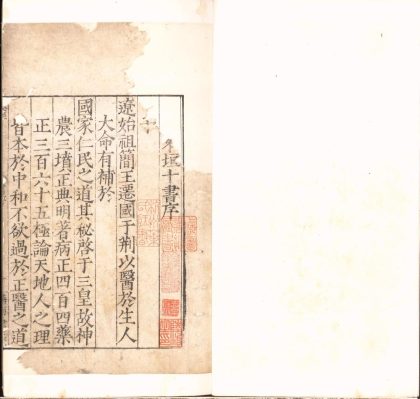 垣十書序
遼始祖簡王遷國于荆以醫於生人
大命有補於
國家仁民之道其秘啓于三皇故神
農三墳正典明著病正四百四藥
正三百六十五極論天地人之理
皆本於中和不欲過於正醫之道